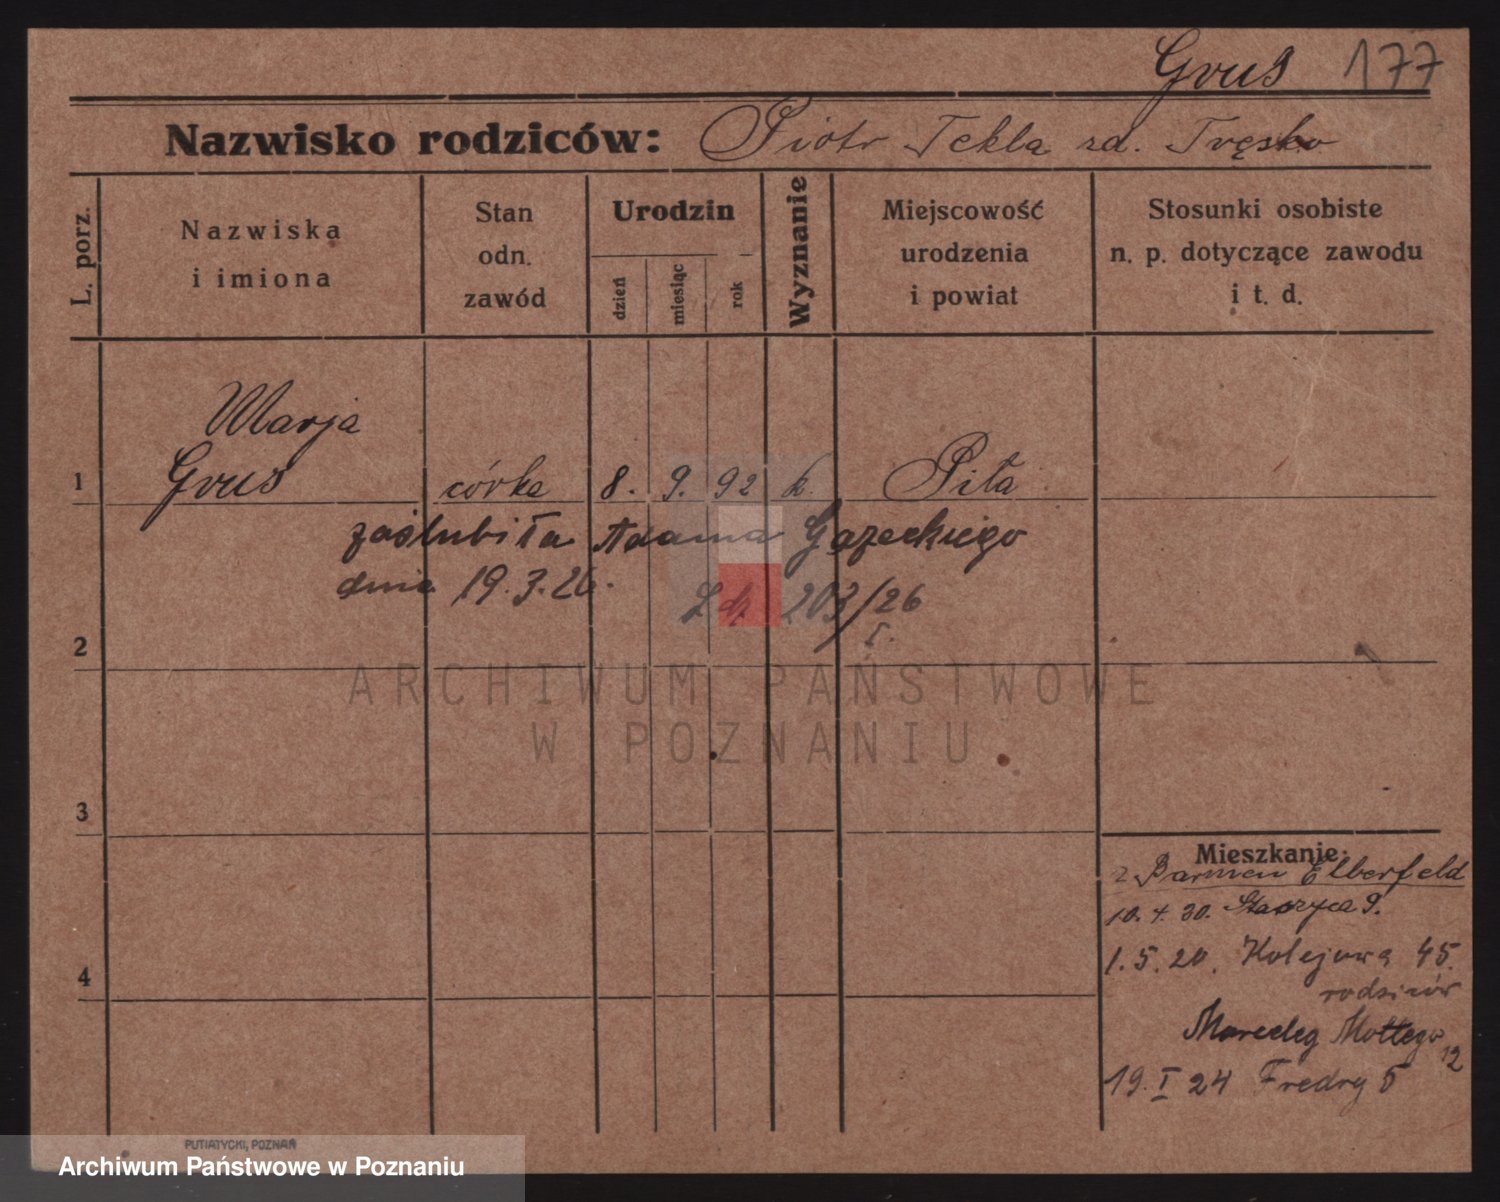 Grus 177
Nazwisko rodziców: Piotr Tekla zd. Tręsko
L. porz.
Nazwiska
i imiona
Stan
odn.
zawód
Urodzin
dzień
miesiąc
rok
Wyznanie
Miejscowość
urodzenia
i powiat
Stosunki osobiste
n. p. dotyczące zawodu
i t. d.
Marja
1 Grus córka 8. 9. 92 k. Piła
zaślubiła Adama
dnia 19.3.26. Ldz 203/26
2
ARCHIWUM PAŃSTWOWE
W POZNANIU
3
4
Mieszkanie:
z Barmen Elberfeld
10. 4. 20. 9.
1.5.20. Kolejowa 45.
rodziców
Mottego
12
19.I 24 Fredry 5
PUTIATYCKI, POZNAŃ
Archiwum Państwowe w Poznaniu